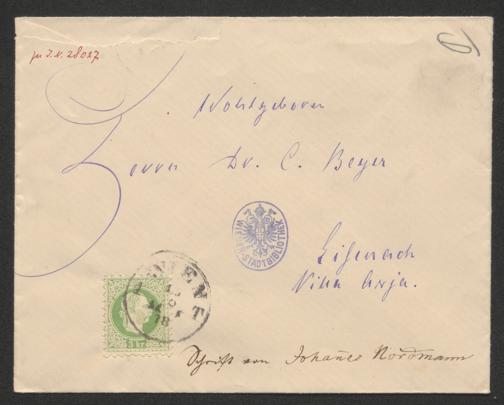 zu I.N. 28057
Wohlgeboren
Herrn Dr. C. Beyer
WIENER STADTBIBLIOTHEK
Eisenach
Villa
3 KR
Schrift von Johannes Nordmann